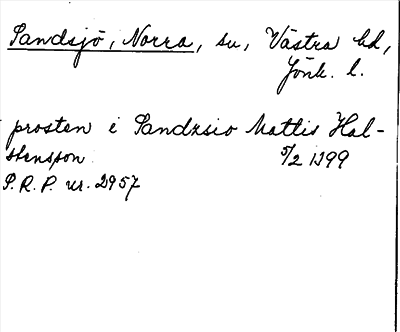 Sandsjö, Norra, sn, Västra hd,
Jönk. l.
prosten i Sandzsio Mattis Hal-
stensson 5/2 1399
S.R.P. nr. 2957